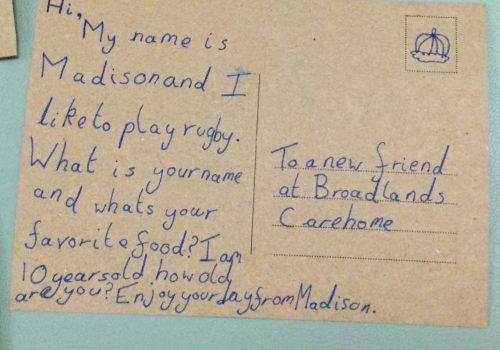 Hi,
My name is
Madison and I
like to play rugby.
What is your name
and whats your
favorite food? I am
10 years old how old
are you? Enjoy your day from Madison.
To a new friend
at Broadlands
Carehome